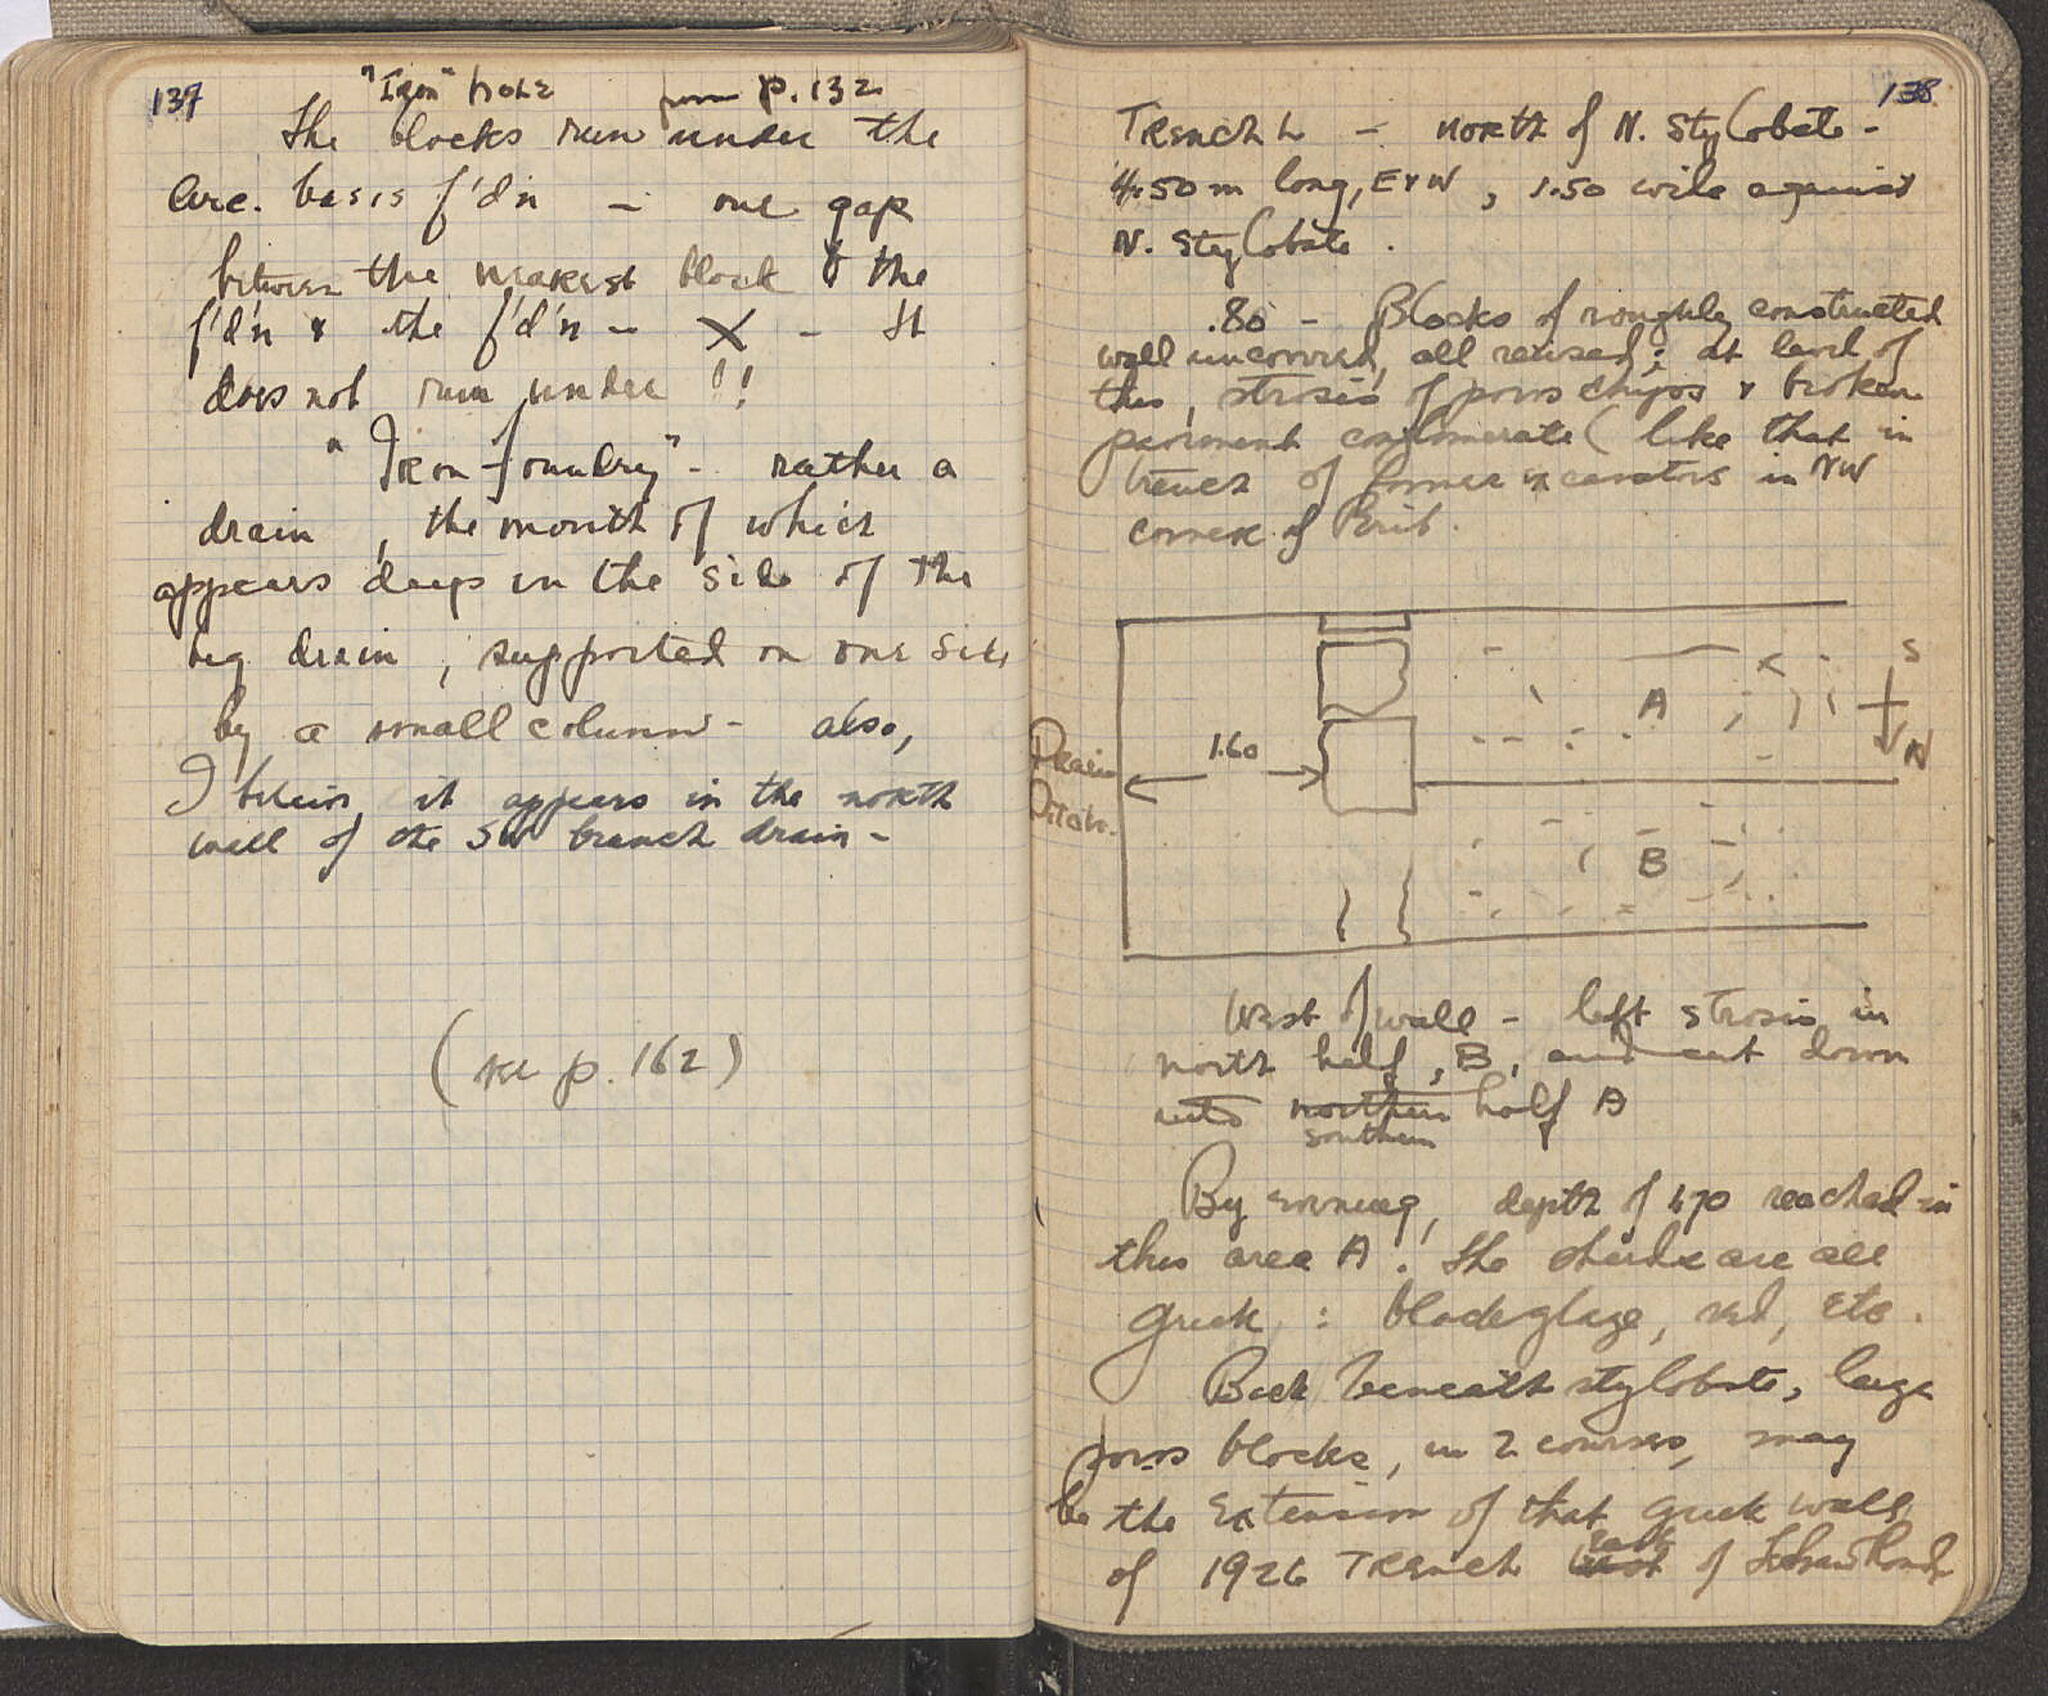 137
"Iron" hole from p. 132
The blocks run under the
Lec. basis f'd'n – one gap
between the nearest block & the
f'd'n & the f'd'n – X – It
does not run under !!
"Iron-foundry" – rather a
drain, the mouth of which
appears deep in the side of the
big drain, supported on one side
by a small column – also,
I believe, it appears in the north
wall of the SW branch drain –
(see p. 162)
138
Trench L – north of N. Stylobate –
4.50 m long, E & W, 1.50 wide against
N. Stylobate.
.80 – Blocks of roughly constructed
wall uncovered, all reused; at level of
this, strosis of poros chips & broken
pavement conglomerate (like that in
trench of former excavators in NW
corner of Perib.
S
A
1.60
N
Drain
Ditch.
B
West of wall – left strosis in
north half, B, and cut down
into northern half A
southern
By evening, depth of 1.70 reached in
this area A. The sherds are all
Greek : black glaze, red, etc.
Back beneath stylobate, large
poros blocks, in 2 courses, may
be the extension of that Greek wall
of 1926 Trench west of
east